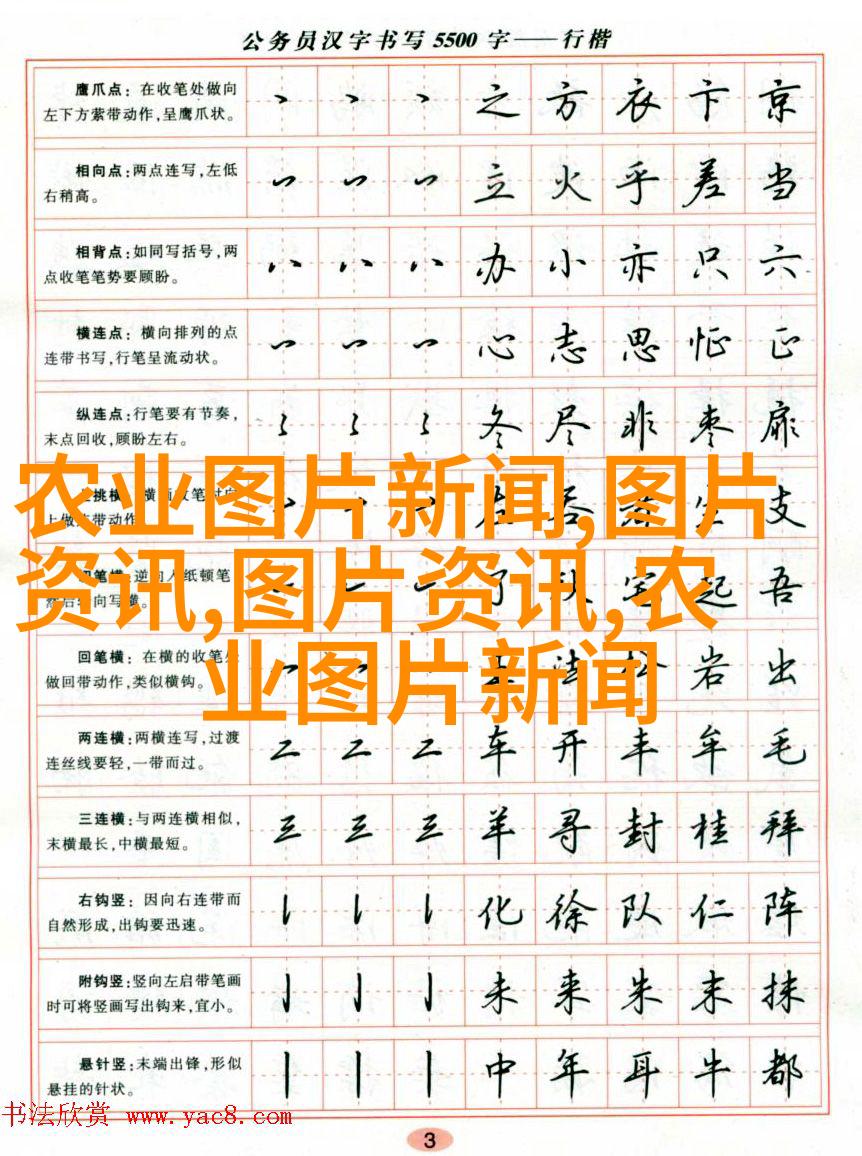 公务员汉字书写 5500 字——行楷
鹰爪点：在收笔处做向
左下方萦带动作，呈鹰爪状。
之 方 衣 卞 京
相向点：两点连写，左低
右稍高。
立 火 乎 差 当
相背点：如同写括号，两
点收笔笔势要顾盼。
办 小 亦 只 六
横连点：横向排列的点
连带书写，行笔呈流动状。
心 志 思 恒 正
纵连点：行笔要有节奏，
末点回收，顾盼左右。
冬 尽 非 枣 扉
农业图片新闻,图片
资讯,图片资讯,农
业图片新闻
支
起 吾
回笔横：在横的收笔处
做回带动作，类似横钩。
岩 出
两连横：两横连写，过渡
连丝线要轻，一带而过。
二 二 二 车 开 丰 牟 毛
三连横：与两连横相似，
末横最长，中横最短。
三 三 三 羊 寻 封 桂 拜
右钩竖：因向右连带而
自然形成，出钩要迅速。
化 徐 队 仁 阵
附钩竖：竖向左启带笔画
时可将竖画写出钩来，宜小。
未 来 朱 末 抹
悬针竖：末端出锋，形似
悬挂的针状。
中 年 耳 牛 都
书法欣赏 www.yac8.com
3